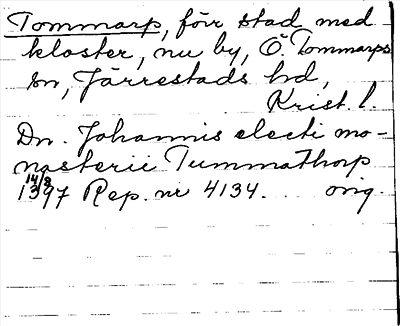 Tommarp, förr stad med
kloster, nu by, Ö. Tommarps
sn, Järrestads hd,
Krist. l.
Dn. Johannis electi mo-
nasterii Tummathorp
14/2
1397 Rep. nr 4134. orig.